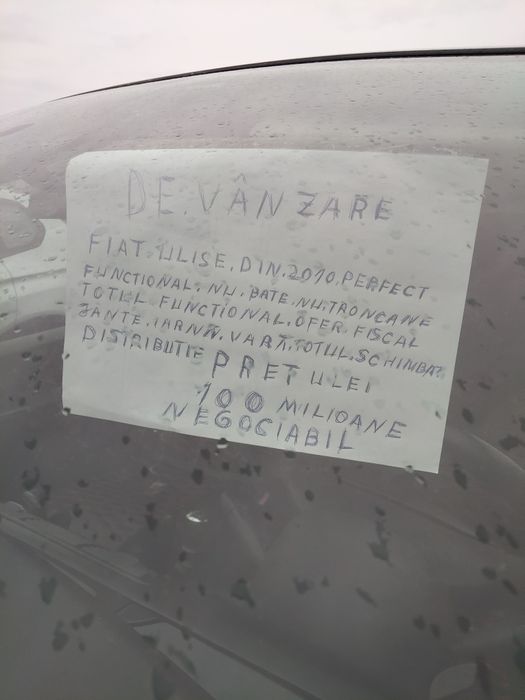 DE.VÂNZARE
FIAT.ULISE.DIN.2010.PERFECT
FUNCTIONAL.NU.BATE.NU.TRONCANE
TOTUL FUNCTIONAL.OFER.FISCAL
JANTE.IARNĂ.VARĂ.TOTUL.SCHIMBAT
DISTRIBUTIE PRET ULEI
100 MILIOANE
NEGOCIABIL